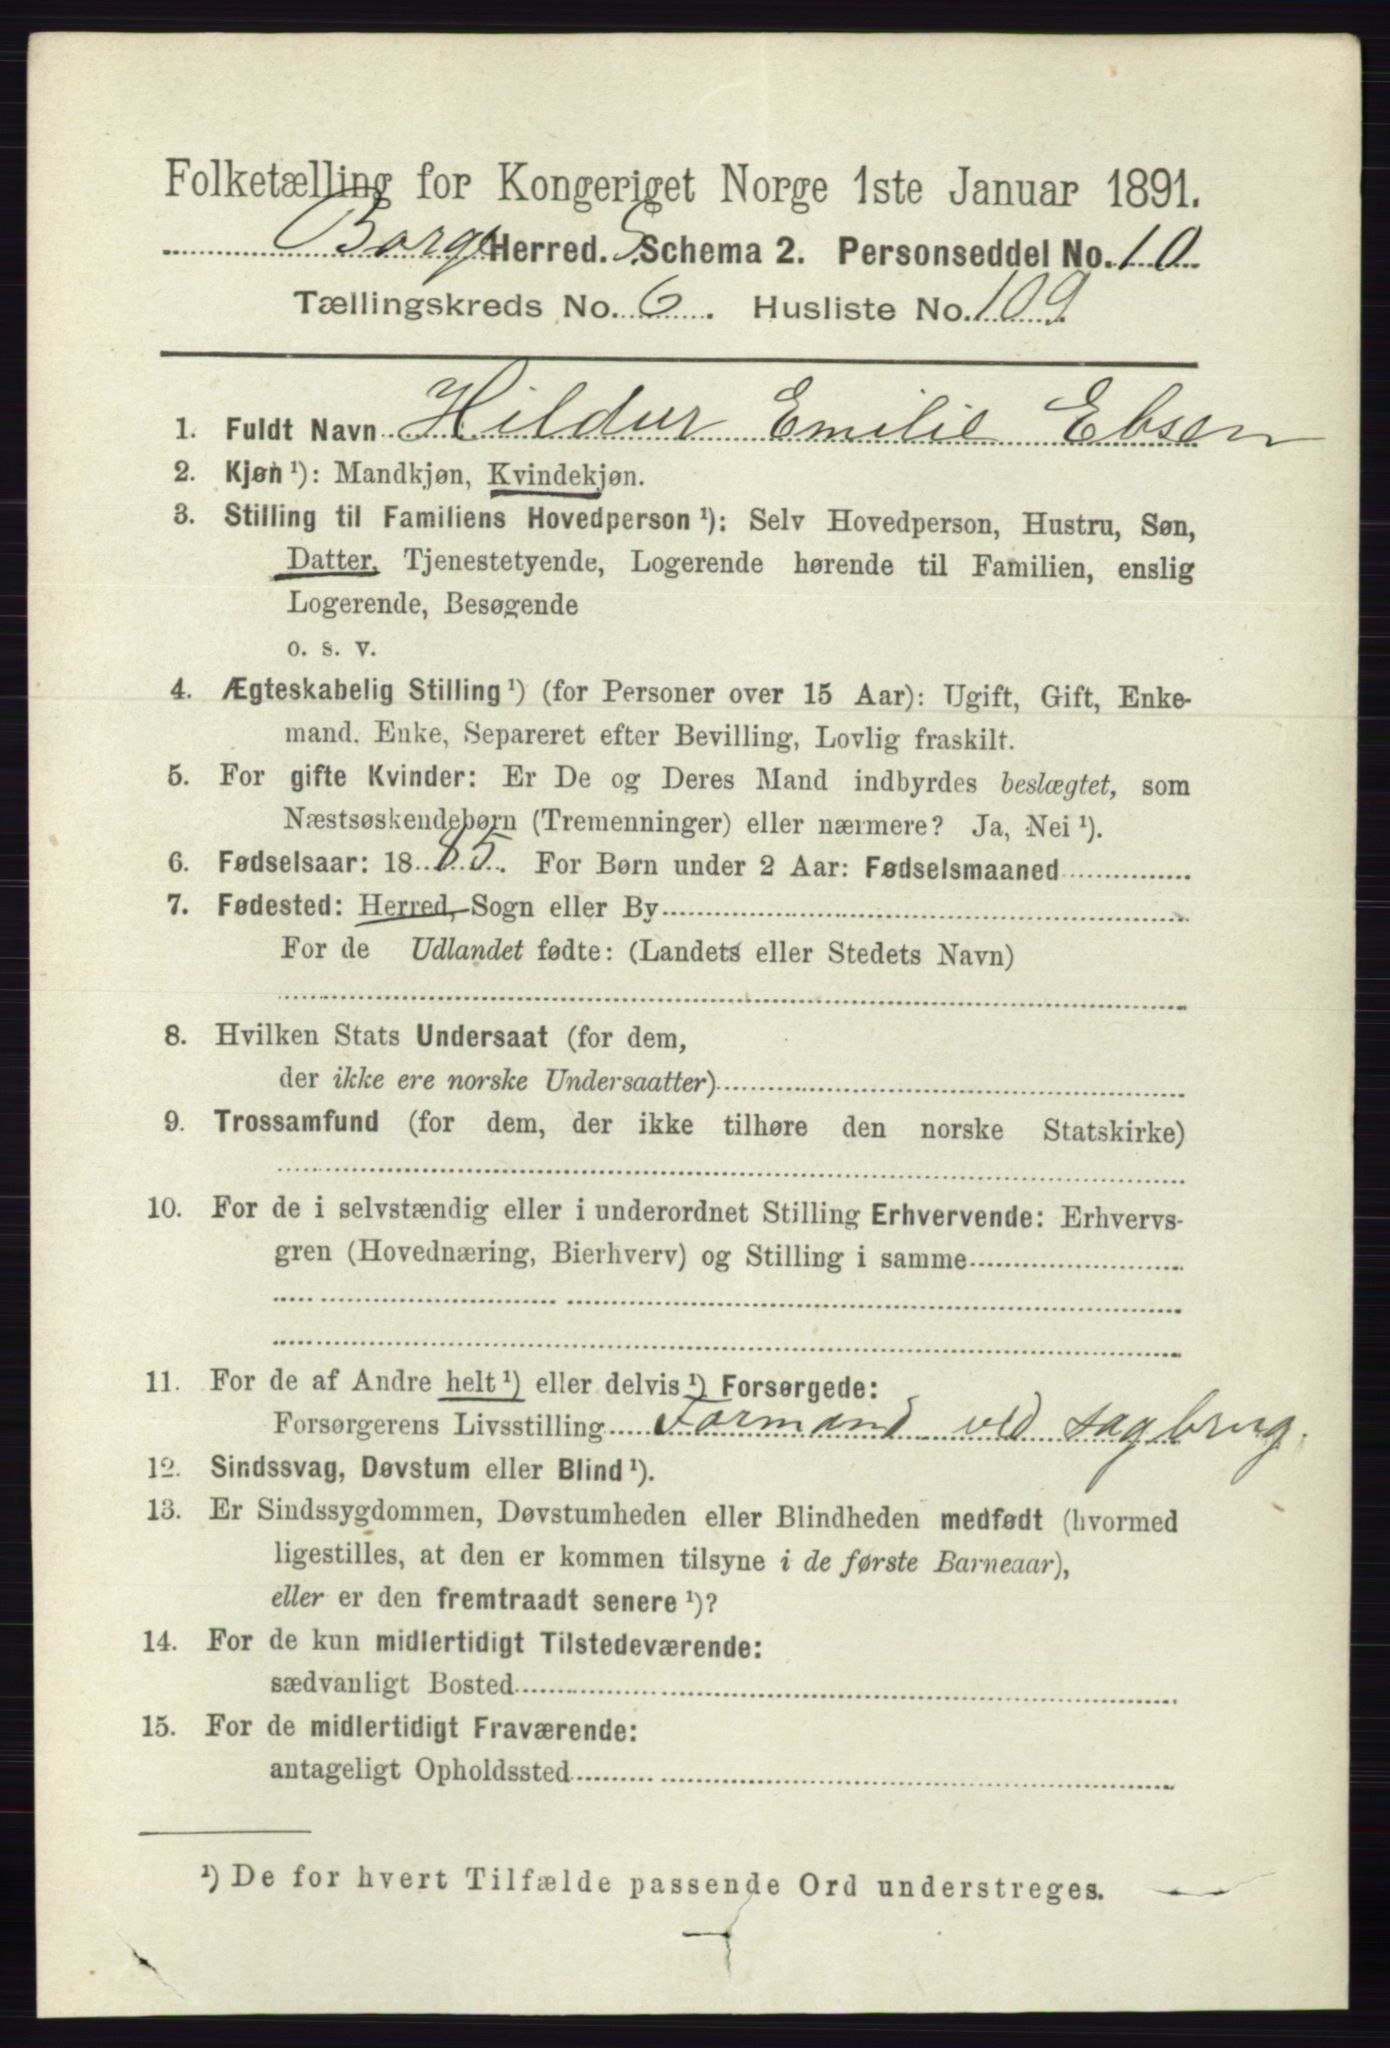 Folketælling for Kongeriget Norge 1ste Januar 1891.
Borge Herred. S. Schema 2. Personseddel No. 10
Tællingskreds No. 6. Husliste No. 109
1. Fuldt Navn Hildur Emilie Ebsen
2. Kjøn ¹): Mandkjøn, Kvindekjøn.
3. Stilling til Familiens Hovedperson ¹): Selv Hovedperson, Hustru, Søn,
Datter, Tjenestetyende, Logerende hørende til Familien, enslig
Logerende, Besøgende
o. s. v.
4. Ægteskabelig Stilling ¹) (for Personer over 15 Aar): Ugift, Gift, Enke-
mand. Enke, Separeret efter Bevilling, Lovlig fraskilt.
5. For gifte Kvinder: Er De og Deres Mand indbyrdes beslægtet, som
Næstsøskendebørn (Tremenninger) eller nærmere? Ja, Nei ¹).
6. Fødselsaar: 1885. For Børn under 2 Aar: Fødselsmaaned
7. Fødested: Herred, Sogn eller By
For de Udlandet fødte: (Landets eller Stedets Navn)
8. Hvilken Stats Undersaat (for dem,
der ikke ere norske Undersaatter)
9. Trossamfund (for dem, der ikke tilhøre den norske Statskirke)
10. For de i selvstændig eller i underordnet Stilling Erhvervende: Erhvervs-
gren (Hovednæring, Bierhverv) og Stilling i samme
11. For de af Andre helt ¹) eller delvis ¹) Forsørgede:
Forsørgerens Livsstilling Formand ved sagbrug.
12. Sindssvag, Døvstum eller Blind ¹).
13. Er Sindssygdommen, Døvstumheden eller Blindheden medfødt (hvormed
ligestilles, at den er kommen tilsyne i de første Barneaar),
eller er den fremtraadt senere ¹)?
14. For de kun midlertidigt Tilstedeværende:
sædvanligt Bosted
15. For de midlertidigt Fraværende:
antageligt Opholdssted
¹) De for hvert Tilfælde passende Ord understreges.